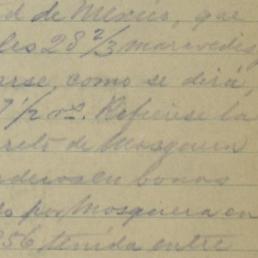 d de México, que
les 28 2/3 maravedis
arse, como se dirá,
7 1/2 rs. Refiérese la
reto de Mosquera
aderos en bonos
do por Mosquera en
856 tenida entre